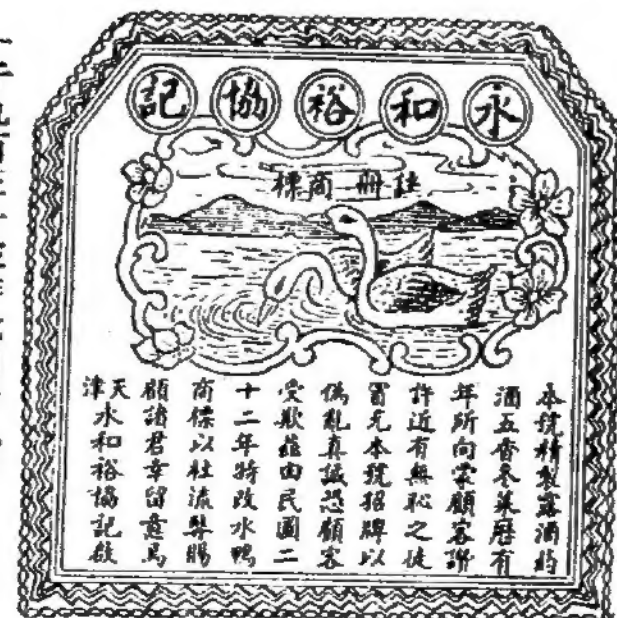 永和裕協記
註冊商標
本號精製露酒葯
酒五香冬菜歷有
年所向蒙顧客讚
許近有無恥之徒
冒充本號招牌以
偽亂真誠恐顧客
受欺茲由民國二
十二年特改水鴨
商標以杜流弊賜
顧諸君幸留意焉
天津永和裕協記啟